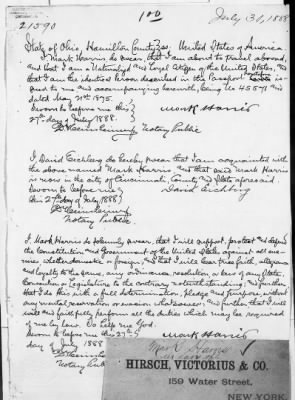 100
July 31, 1888
21590
State of Ohio, Hamilton County ss. United States of America.
I Mark Harris do swear, that I am about to travel abroad,
and that I am a Naturalized and Loyal Citizen of the United States, and
that I am the identical Person described in the Passport
issued to me and accompanying herewith, being No 45571 and
dated May 21st 1875.
Sworn to before me this
27th day of July 1888.
Mark Harris
Notary Public
I, David Eichberg do hereby swear that I am acquainted with
the above named Mark Harris and that said Mark Harris
is now in the city of Cincinnati, County and State aforesaid.
Sworn to before me
David Eichberg
this 27th day of July 1888
Notary Public
I, Mark Harris do solemnly swear, that I will support, protect and defend
the Constitution and Government of the United States against all
enemies whether domestic or foreign, and that I will bear true faith, allegiance
and loyalty to the same, any ordinance, resolution or law of any State,
Convention or Legislature to the contrary notwithstanding, and further
that I do this with a full determination, pledge and purpose, without
any mental reservation or evasion whatsoever, and further that I will
well and faithfully perform all the duties which may be required
of me by law. So help me God.
Sworn to before me this 27th
day of July 1888
Mark Harris
Notary Public
HIRSCH, VICTORIUS & CO.
159 Water Street.
NEW YORK.